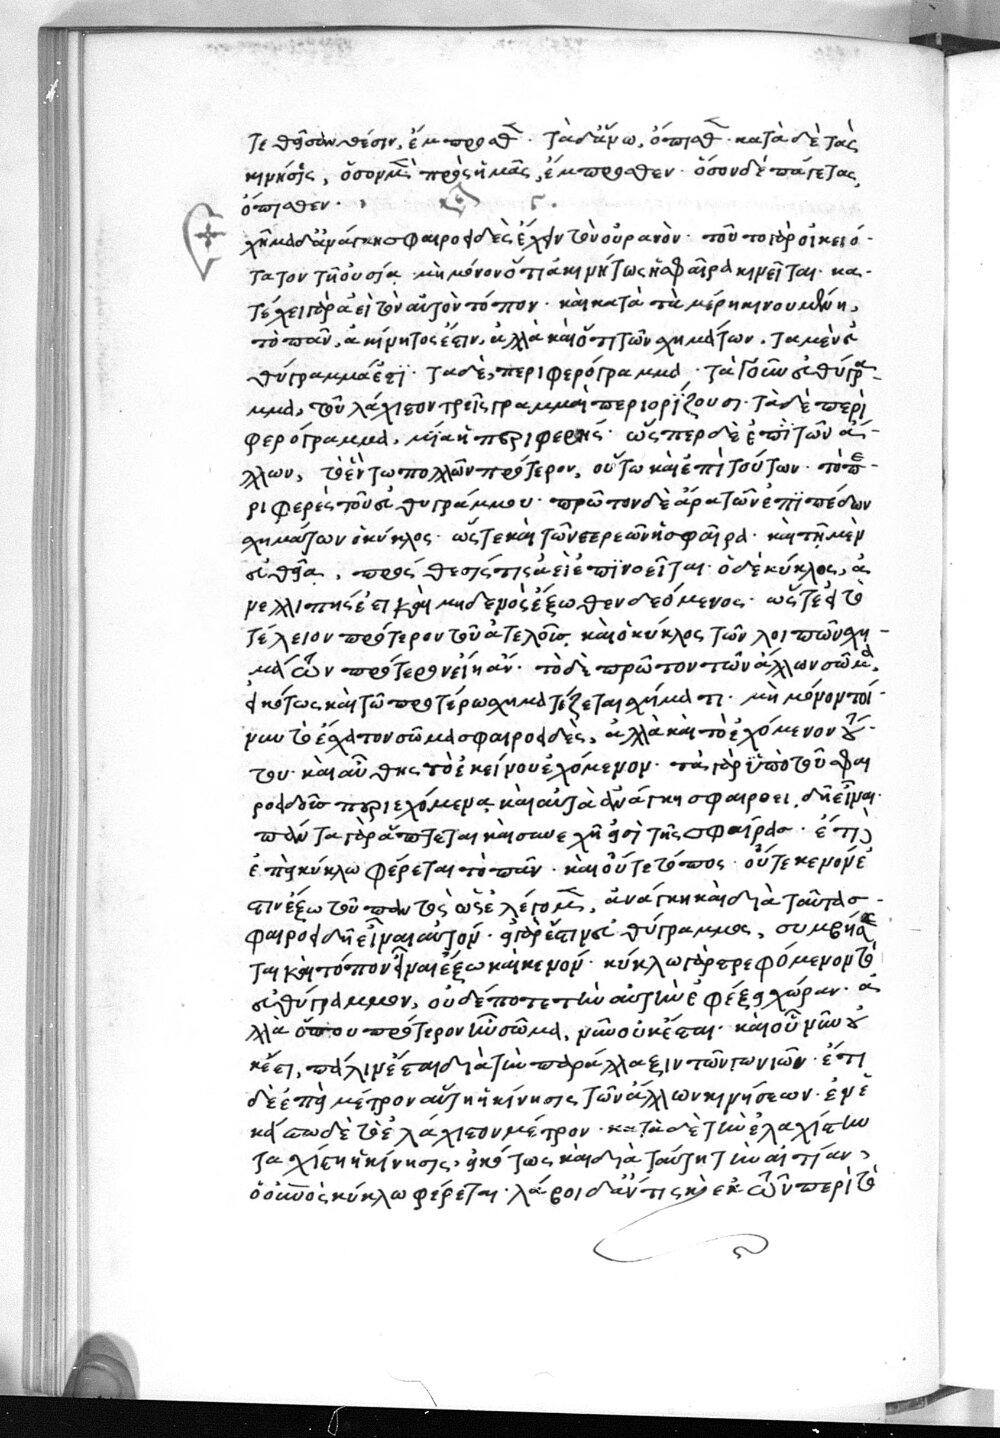 τε θέσιν, ἔμπροσθεν· τὰ δ' ἄνω, ὄπισθεν· κατὰ δὲ τὰς
κινήσεις, ὅσον μὲν πρὸς ἡμᾶς, ἔμπροσθεν· ὅσον δὲ πάντας,
ὄπισθεν·
Σχῆμα δ' ἀνάγκη σφαιροειδὲς ἔχειν τὸν οὐρανόν· τοῦτο γὰρ οἰκειό-
τατον τῇ οὐσίᾳ· μὴ μόνον ὅτι ἀκινήτως ἡ σφαῖρα κινεῖται· κα-
τέχει γὰρ ἀεὶ τὸν αὐτὸν τόπον· καὶ κατὰ τὰ μέρη κινουμένη,
τὸ πᾶν, ἀκίνητός ἐστιν, ἀλλὰ καὶ ὅτι τῶν σχημάτων, τὰ μὲν εὐ
θύγραμμά ἐστι· τὰ δὲ, περιφερόγραμμα· τὰ γοῦν εὐθύγρα-
μμα, τοὐλάχιστον τρεῖς γραμμαὶ περιορίζουσι· τὰ δὲ περι
φερόγραμμα, μία ἡ περιφερής· ὥσπερ δὲ ἐπὶ τῶν ἄ-
λλων, τὸ ἓν τῶ πολλῶν πρότερον, οὕτω καὶ ἐπὶ τούτων· τὸ πε-
ριφερὲς τοῦ εὐθυγράμμου· πρῶτον δὲ ἄρα τῶν ἐπιπέδων
σχημάτων ὁ κύκλος· ὥστε καὶ τῶν στερεῶν ἡ σφαῖρα· καὶ τῇ μὲν
εὐθείᾳ, πρόσθεσίς τις ἀεὶ ἐπινοεῖται· ὁ δὲ κύκλος, ἀ
νελλιπής ἐστι καὶ μηδενὸς ἔξωθεν δεόμενος· ὥστε εἰ τὸ
τέλειον πρότερον τοῦ ἀτελοῦς, καὶ ὁ κύκλος τῶν λοιπῶν σχη
μάτων πρότερον εἴη ἄν· τὸ δὲ πρῶτον τῶν ἄλλων σῶμα,
εἰκότως καὶ τῶ προτέρω σχηματίζεται σχήματι· μὴ μόνον τοί-
νυν τὸ ἔσχατον σῶμα σφαιροειδὲς, ἀλλὰ καὶ τὸ ἐχόμενον τού-
του· καὶ αὖθις τὸ ἐκείνου ἐχόμενον· τὰ γὰρ ὑπὸ τοῦ σφαι
ροειδοῦς περιεχόμενα, καὶ αὐτὰ ἀνάγκη σφαιροειδῆ εἶναι·
πάντα γὰρ ἅπτεται καὶ συνεχῆ ἐστὶ τῆς σφαίρας· ἔτι
ἐπεὶ κύκλω φέρεται τὸ πᾶν· καὶ οὔτε τόπος οὔτε κενόν ἐ
στιν ἔξω τοῦ παντὸς ὡς ἐλέγομεν, ἀνάγκη καὶ διὰ ταῦτα σ-
φαιροειδῆ εἶναι αὐτόν· εἰ γάρ ἐστιν εὐθύγραμμος, συμβήσε
ται καὶ τόπον εἶναι ἔξω καὶ κενόν· κύκλω γὰρ στρεφόμενον τὸ
εὐθύγραμμον, οὐδέποτε τὴν αὐτὴν ἐφέξει χώραν· ἀ
λλὰ ὅπου πρότερον ἦν σῶμα, νῦν οὐκ ἔσται· καὶ οὗ νῦν οὐ
κέτι, πάλιν ἔσται διὰ τὴν παράλλαξιν τῶν γωνιῶν· ἔτι
δὲ ἐπεὶ μέτρον αὕτη ἡ κίνησις τῶν ἄλλων κινήσεων· ἐν ἑ
κάστω δὲ τὸ ἐλάχιστον μέτρον· κατὰ δὲ τὴν ἐλαχίστην
ταχίστη ἡ κίνησις, εἰκότως καὶ διὰ ταύτην τὴν αἰτίαν,
ὁ οὐρανὸς κύκλω φέρεται· λάβοι δ' ἄν τις κἀκ τῶν περὶ τὸ